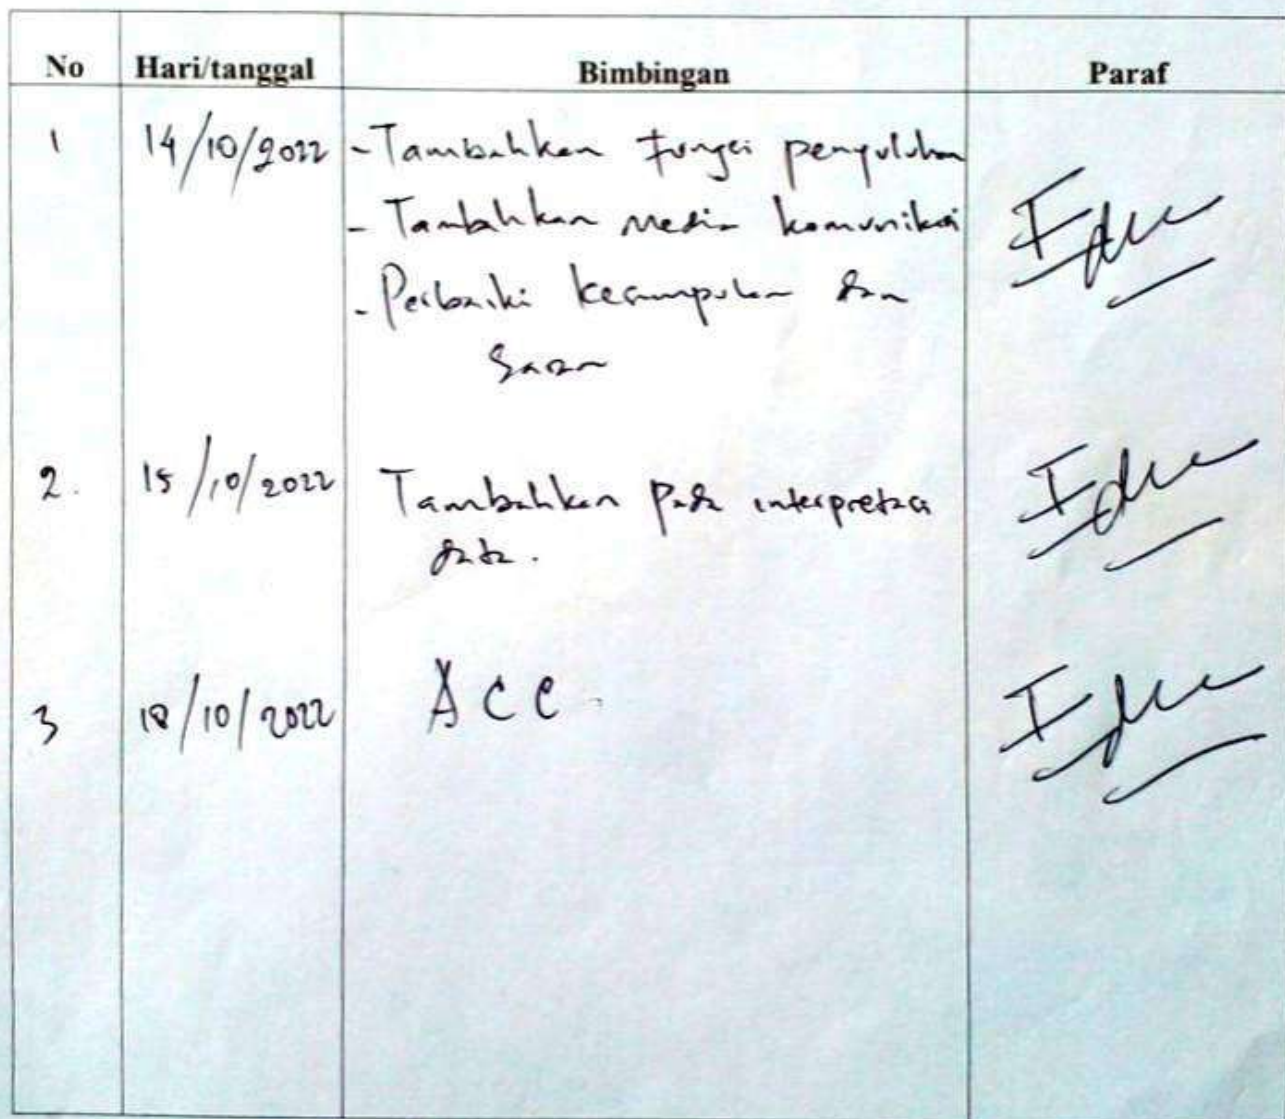 No Hari/tanggal Bimbingan Paraf
1 14/10/2022 - Tambahkan Fungsi penyuluhan
- Tambahkan Media komunikasi
- Perbaiki kesimpulan dan
Saran
2. 15/10/2022 Tambahkan pada interpretasi
data.
3 18/10/2022 ACC